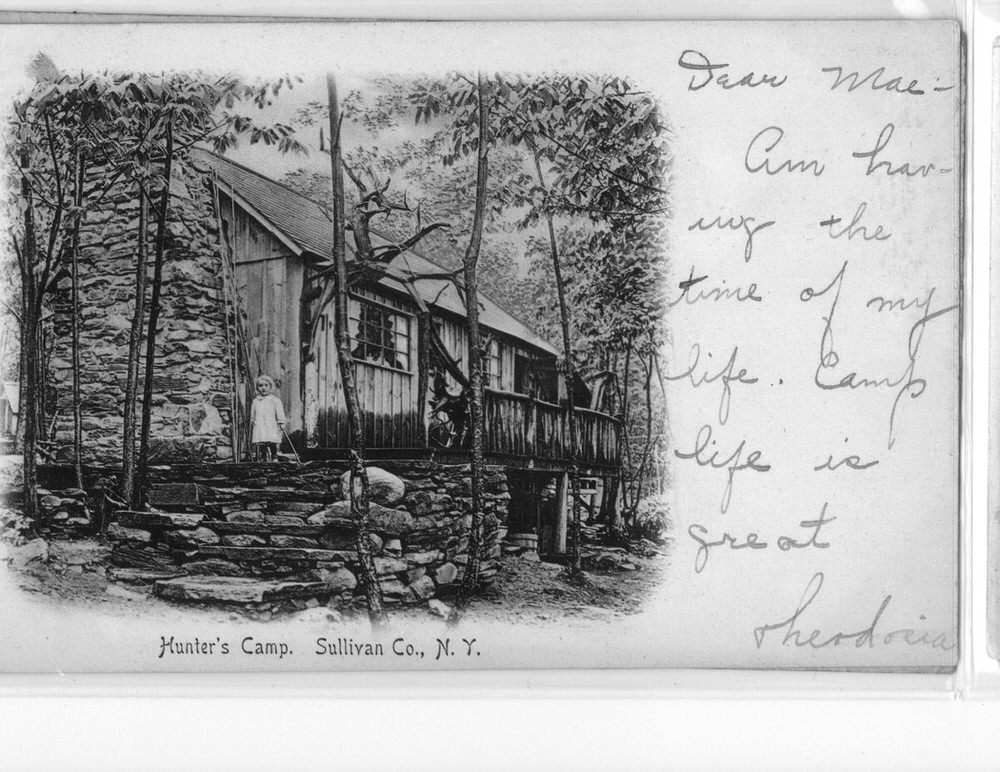 Dear Mae-
Am hav-
ing the
time of my
life. Camp
life is
great
Theodosia
Hunter's Camp. Sullivan Co., N. Y.